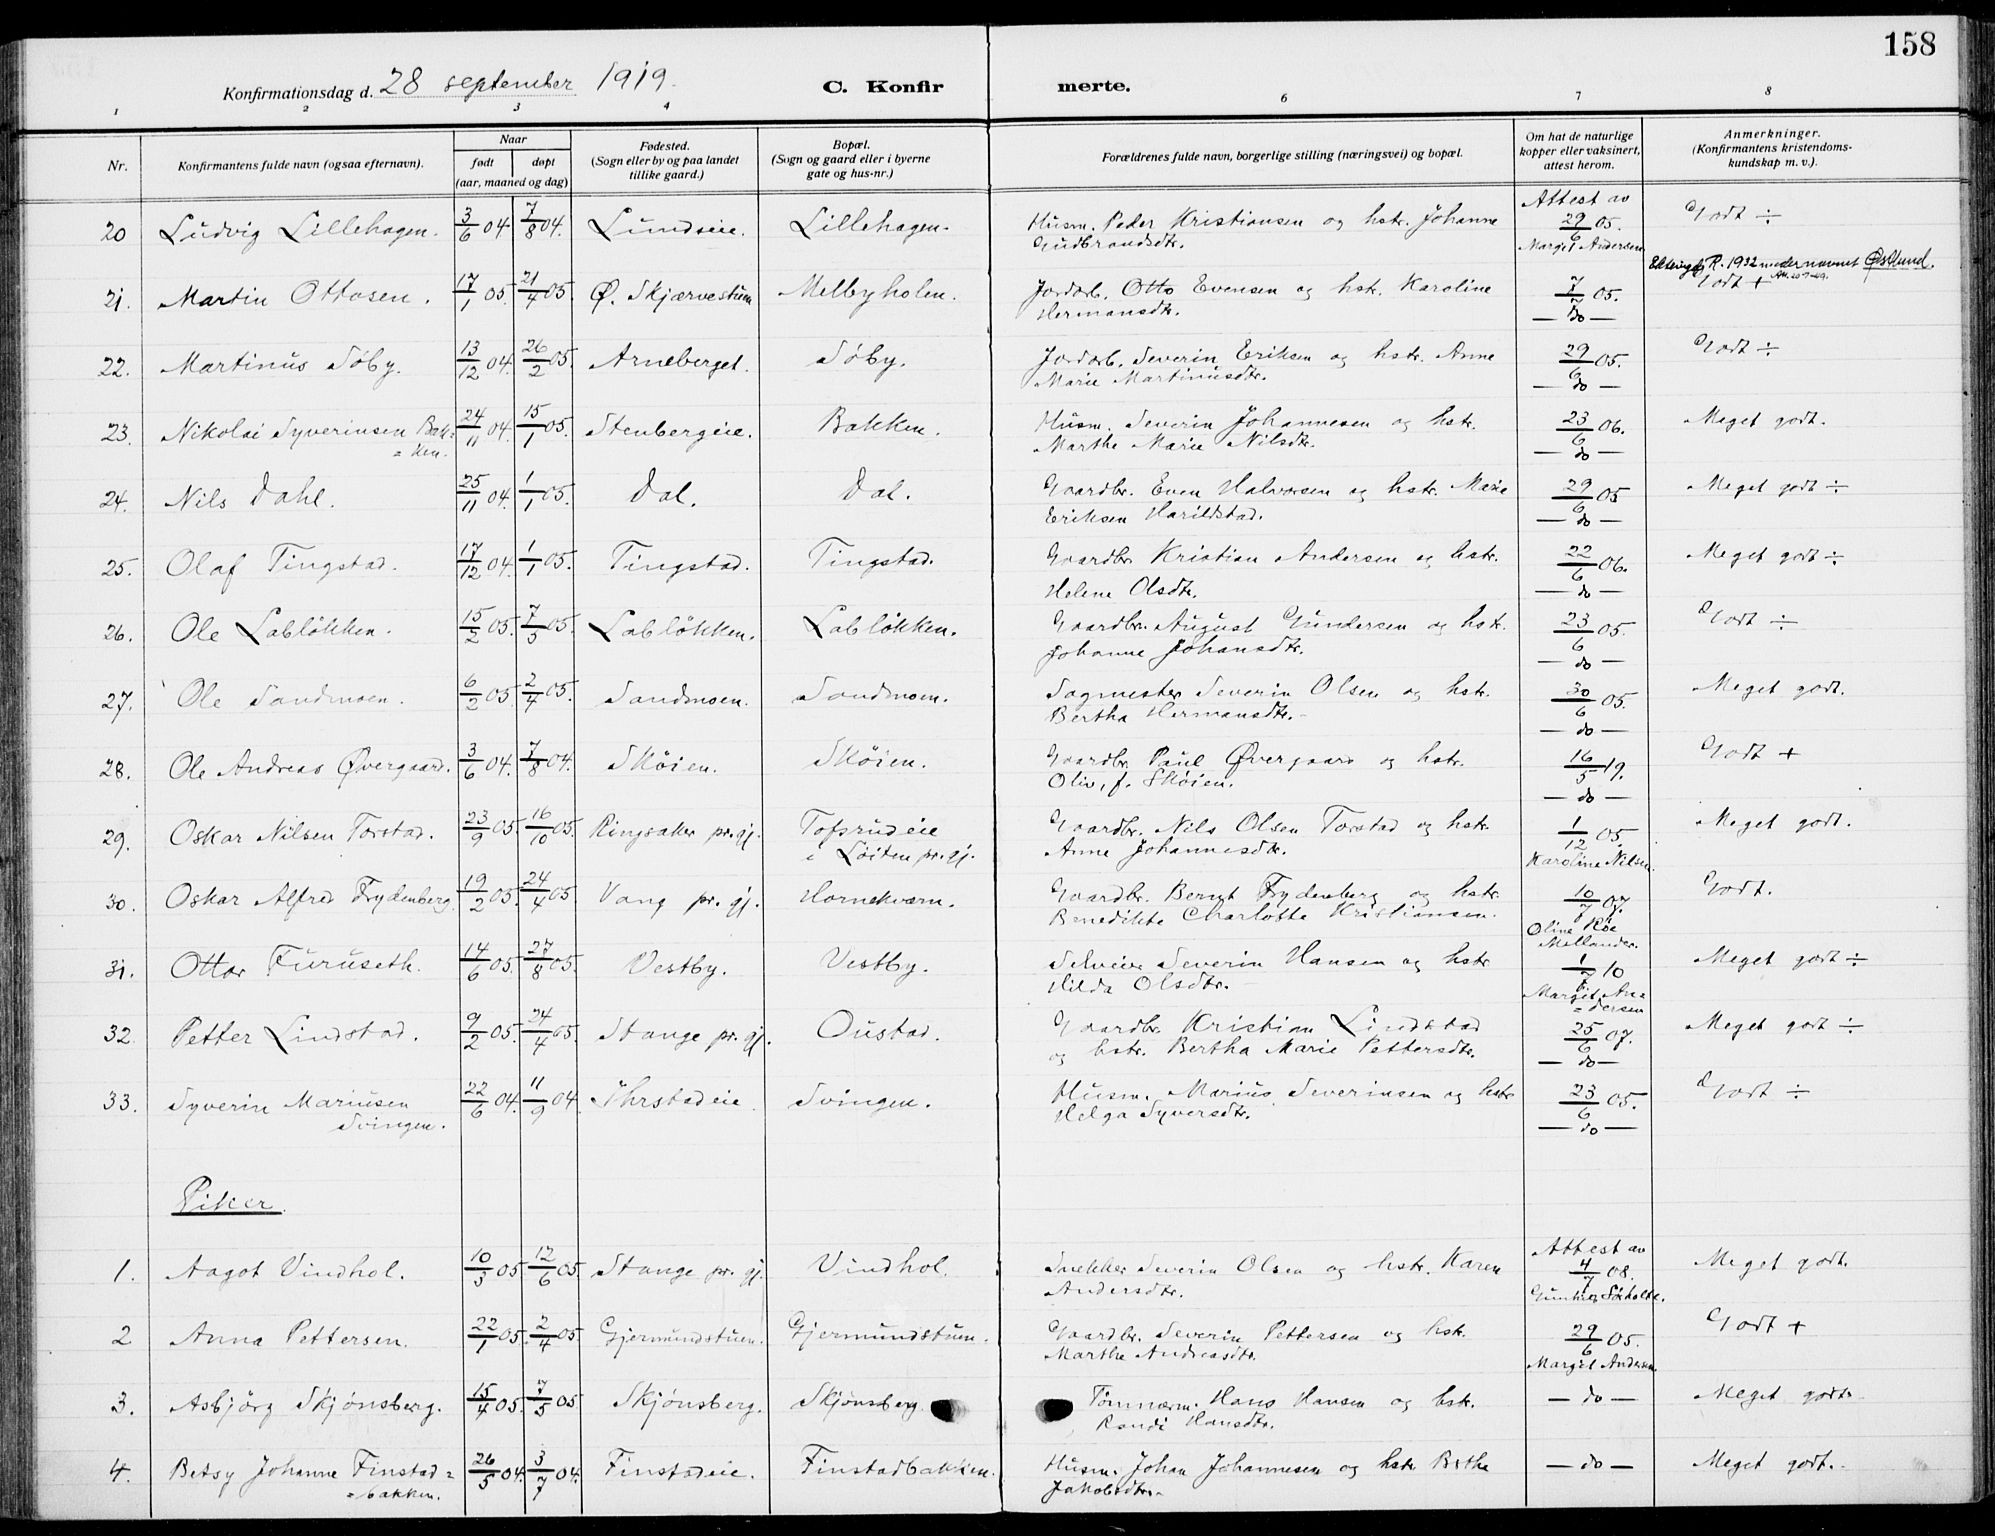 158
Konfirmationsdag d. 28 september 1919.
C. Konfirmerte.
1 2 3 4 6 7 8
Nr. Konfirmantens fulde navn (ogsaa efternavn). Naar født døpt (aar, maaned og dag) Fødested. (Sogn eller by og paa landet tillike gaard.) Bopæl. (Sogn og gaard eller i byerne gate og hus-nr.) Forældrenes fulde navn, borgerlige stilling (næringsvei) og bopæl. Om hat de naturlige kopper eller vaksinert, attest herom. Anmerkninger. (Konfirmantens kristendomskundskap m. v.).
20 Ludvig Lillehagen. 3/6 04 7/8 04. Lundseie. Lillehagen. Husm. Peder Kristiansen og hstr. Johanne Gudbrandsdtr. Attest av 29/6 05. Margit Andersen Godt ÷
21. Martin Ottosen. 17/1 05. 21/4 05. Ø. Skjærvestuen Melbyholen. Jordarb. Otto Evensen og hstr. Karoline Hermansdtr. 7/7 05. — do — R. 1932 med navnet Østlund. Godt +
22. Martinus Söby. 13/12 04. 26/2 05. Arneberget. Söby. Jordarb. Severin Eriksen og hstr. Anne Marie Martinusdtr. 29/6 05. — do — Godt ÷
23. Nikolai Syverinsen Bak= =ken. 24/11 04. 15/1 05. Stenbergeie. Bakken. Husm. Severin Johannesen og hstr. Marthe Marie Nilsdtr. 23/6 06. — do — Meget godt.
24. Nils Dahl. 25/11 04. 1/1 05. Dal. Dal. Gaardbr. Even Halvorsen og hstr. Marie Eriksen Harildstad. 29/6 05 — do — Meget godt ÷
25. Olaf Tingstad. 17/12 04. 1/1 05. Tingstad. Tingstad. Gaardbr. Kristian Andersen og hstr. Helene Olsdtr. 22/6 06. — do — Meget godt ÷
26. Ole Labløkken. 15/2 05. 7/5 05. Labløkken. Labløkken. Gaardbr. August Gundersen og hstr. Johanne Johansdtr. 23/6 05. — do — Godt ÷
27. Ole Sandmoen. 6/2 05. 2/4 05. Sandmoen. Sandmoen. Sagmester Severin Olsen og hstr. Bertha Hermansdtr. 30/6 05. — do — Meget godt.
28. Ole Andreas Øvergaard. 3/6 04. 7/8 04. Skøien. Skøien. Gaardbr. Paul Øvergaard og hstr. Oliv, f. Skøien. 16/5 19. — do — Godt +
29. Oskar Nilsen Torstad. 23/9 05. 16/10 05. Ringsaker pr. gj. Tofsrudeie i Løiten pr. gj. Gaardbr. Nils Olsen Torstad og hstr. Anne Johannesdtr. 1/12 05. Karoline Nilsen. Meget godt.
30. Oskar Alfred Frydenberg. 19/2 05. 24/4 05 Vang pr. gj. Hornekvern. Gaardbr. Bernt Frydenberg og hstr. Benedikte Charlotte Kristiansen. 10/7 07. Oline Røe Mellander. Godt.
31. Ottar Furuseth. 14/6 05. 27/8 05. Vestby. Vestby. Selveier Severin Hansen og hstr. Hilda Olsdtr. 1/7 10 Margit An= =dersen Meget godt ÷
32. Petter Lindstad. 9/2 05. 24/4 05. Stange pr. gj. Oustad. Gaardbr. Kristian Lindstad og hstr. Bertha Marie Pettersdtr. 25/6 07. — do — Meget godt ÷
33. Syverin Mariusen Svingen. 22/6 04. 11/9 04. Ihrstadeie. Svingen. Husm. Marius Severinsen og hstr Helga Syversdtr. 23/6 05. — do — Godt ÷
Piker
1. Aagot Vindhol. 10/3 05 12/6 05. Stange pr. gj. Vindhol. Snekker Severin Olsen og hstr. Karen Andersdtr. Attest av 4/7 08. Sørholte. Meget godt.
2 Anna Pettersen. 22/1 05. 2/4 05. Gjermundstuen. Gjermundstuen. Gaardbr. Severin Pettersen og hstr. Marthe Andreasdtr. 29/6 05. Margit Andersen Godt +
3. Asbjörg Skjønsberg. 15/4 05. 7/5 05 Skjønsberg. Skjønsberg. Tømmerm. Hans Hansen og hstr. Randi Hansdtr. — do — Meget godt.
4. Betsy Johanne Finstad= =bakken. 26/5 04. 3/7 04. Finstadeie. Finstadbakken. Husm. Johan Johannesen og hstr Berthe Jakobsdtr. — do — Meget godt.